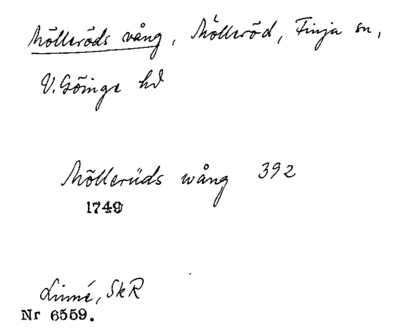 Mölleröds vång, Mölleröd, Finja sn,
V. Göinge hd
Mölleruds wång 392
1749
Linné, SkR
Nr 6559.